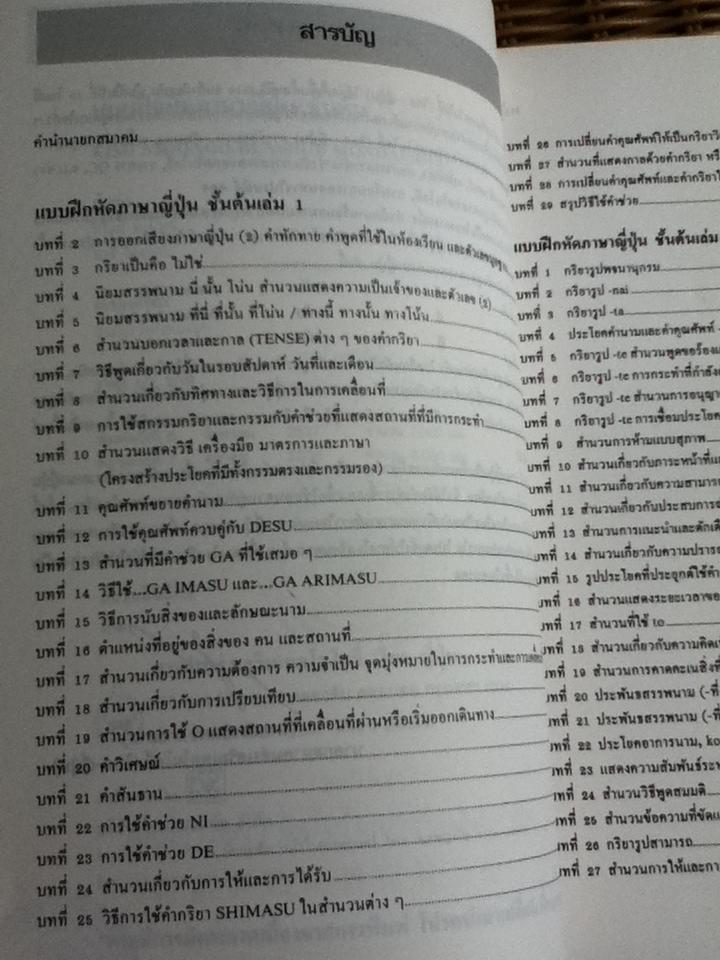 สารบัญ
คำนำนายกสมาคม
แบบฝึกหัดภาษาญี่ปุ่น ชั้นต้นเล่ม 1
บทที่ 2 การออกเสียงภาษาญี่ปุ่น (2) คำทักทาย คำพูดที่ใช้ในห้องเรียน และตัวเลข
บทที่ 3 กริยาเป็นคือ ไม่ใช่
บทที่ 4 นิยมสรรพนาม นี่ นั้น โน่น สำนวนแสดงความเป็นเจ้าของและตัวเลข (2)
บทที่ 5 นิยมสรรพนาม ที่นี่ ที่นั้น ที่โน่น / ทางนี้ ทางนั้น ทางโน้น
บทที่ 6 สำนวนบอกเวลาและกาล (TENSE) ต่าง ๆ ของคำกริยา
บทที่ 7 วิธีพูดเกี่ยวกับวันในรอบสัปดาห์ วันที่และเดือน
บทที่ 8 สำนวนเกี่ยวกับทิศทางและวิธีการในการเคลื่อนที่
บทที่ 9 การใช้สกรรมกริยาและกรรมกับคำช่วยที่แสดงสถานที่ที่มีการกระทำ
บทที่ 10 สำนวนแสดงวิธี เครื่องมือ มาตรการและภาษา
(โครงสร้างประโยคที่มีทั้งกรรมตรงและกรรมรอง)
บทที่ 11 คุณศัพท์ขยายคำนาม
บทที่ 12 การใช้คุณศัพท์ควบคู่กับ DESU
บทที่ 13 สำนวนที่มีคำช่วย GA ที่ใช้เสมอ ๆ
บทที่ 14 วิธีใช้...GA IMASU และ...GA ARIMASU
บทที่ 15 วิธีการนับสิ่งของและลักษณะนาม
บทที่ 16 ตำแหน่งที่อยู่ของสิ่งของ คน และสถานที่
บทที่ 17 สำนวนเกี่ยวกับความต้องการ ความจำเป็น จุดมุ่งหมายในการกระทำและการ
บทที่ 18 สำนวนเกี่ยวกับการเปรียบเทียบ
บทที่ 19 สำนวนการใช้ O แสดงสถานที่ที่เคลื่อนที่ผ่านหรือเริ่มออกเดินทาง
บทที่ 20 คำวิเศษณ์
บทที่ 21 คำสันธาน
บทที่ 22 การใช้คำช่วย NI
บทที่ 23 การใช้คำช่วย DE
บทที่ 24 สำนวนเกี่ยวกับการให้และการได้รับ
บทที่ 25 วิธีการใช้คำกริยา SHIMASU ในสำนวนต่าง ๆ
บทที่ 26 การเปลี่ยนคำคุณศัพท์ให้เป็นกริยาวิ
บทที่ 27 สำนวนที่แสดงกาลด้วยคำกริยา หรื
บทที่ 28 การเปลี่ยนคำคุณศัพท์และคำกริยาใ
บทที่ 29 สรุปวิธีใช้คำช่วย
แบบฝึกหัดภาษาญี่ปุ่น ชั้นต้นเล่ม
บทที่ 1 กริยารูปพจนานุกรม
บทที่ 2 กริยารูป -nai
บทที่ 3 กริยารูป -ta
บทที่ 4 ประโยคคำนามและคำคุณศัพท์
บทที่ 5 กริยารูป -te สำนวนพูดขอร้องแ
บทที่ 6 กริยารูป -te การกระทำที่กำลัง
บทที่ 7 กริยารูป -te สำนวนการอนุญา
บทที่ 8 กริยารูป -te การเชื่อมประโย
บทที่ 9 สำนวนการห้ามแบบสุภาพ
บทที่ 10 สำนวนเกี่ยวกับภาระหน้าที่แ
บทที่ 11 สำนวนเกี่ยวกับความสามาร
บทที่ 12 สำนวนเกี่ยวกับประสบการ
บทที่ 13 สำนวนการแนะนำและตักเตื
บทที่ 14 สำนวนเกี่ยวกับความปรารถ
บทที่ 15 รูปประโยคที่ประยุกต์ใช้คำ
บทที่ 16 สำนวนแสดงระยะเวลาขอ
บทที่ 17 สำนวนที่ใช้ to
บทที่ 18 สำนวนเกี่ยวกับความคิดเ
บทที่ 19 สำนวนการคาดคะเนสิ่งที่
บทที่ 20 ประพันธสรรพนาม (-ที่
บทที่ 21 ประพันธสรรพนาม (-ที่
บทที่ 22 ประโยคอาการนาม, ko
ทที่ 23 แสดงความสัมพันธ์ระห
ทที่ 24 สำนวนวิธีพูดสมมติ
ทที่ 25 สำนวนข้อความที่ขัดแ
ทที่ 26 กริยารูปสามารถ
ทที่ 27 สำนวนการให้และกา